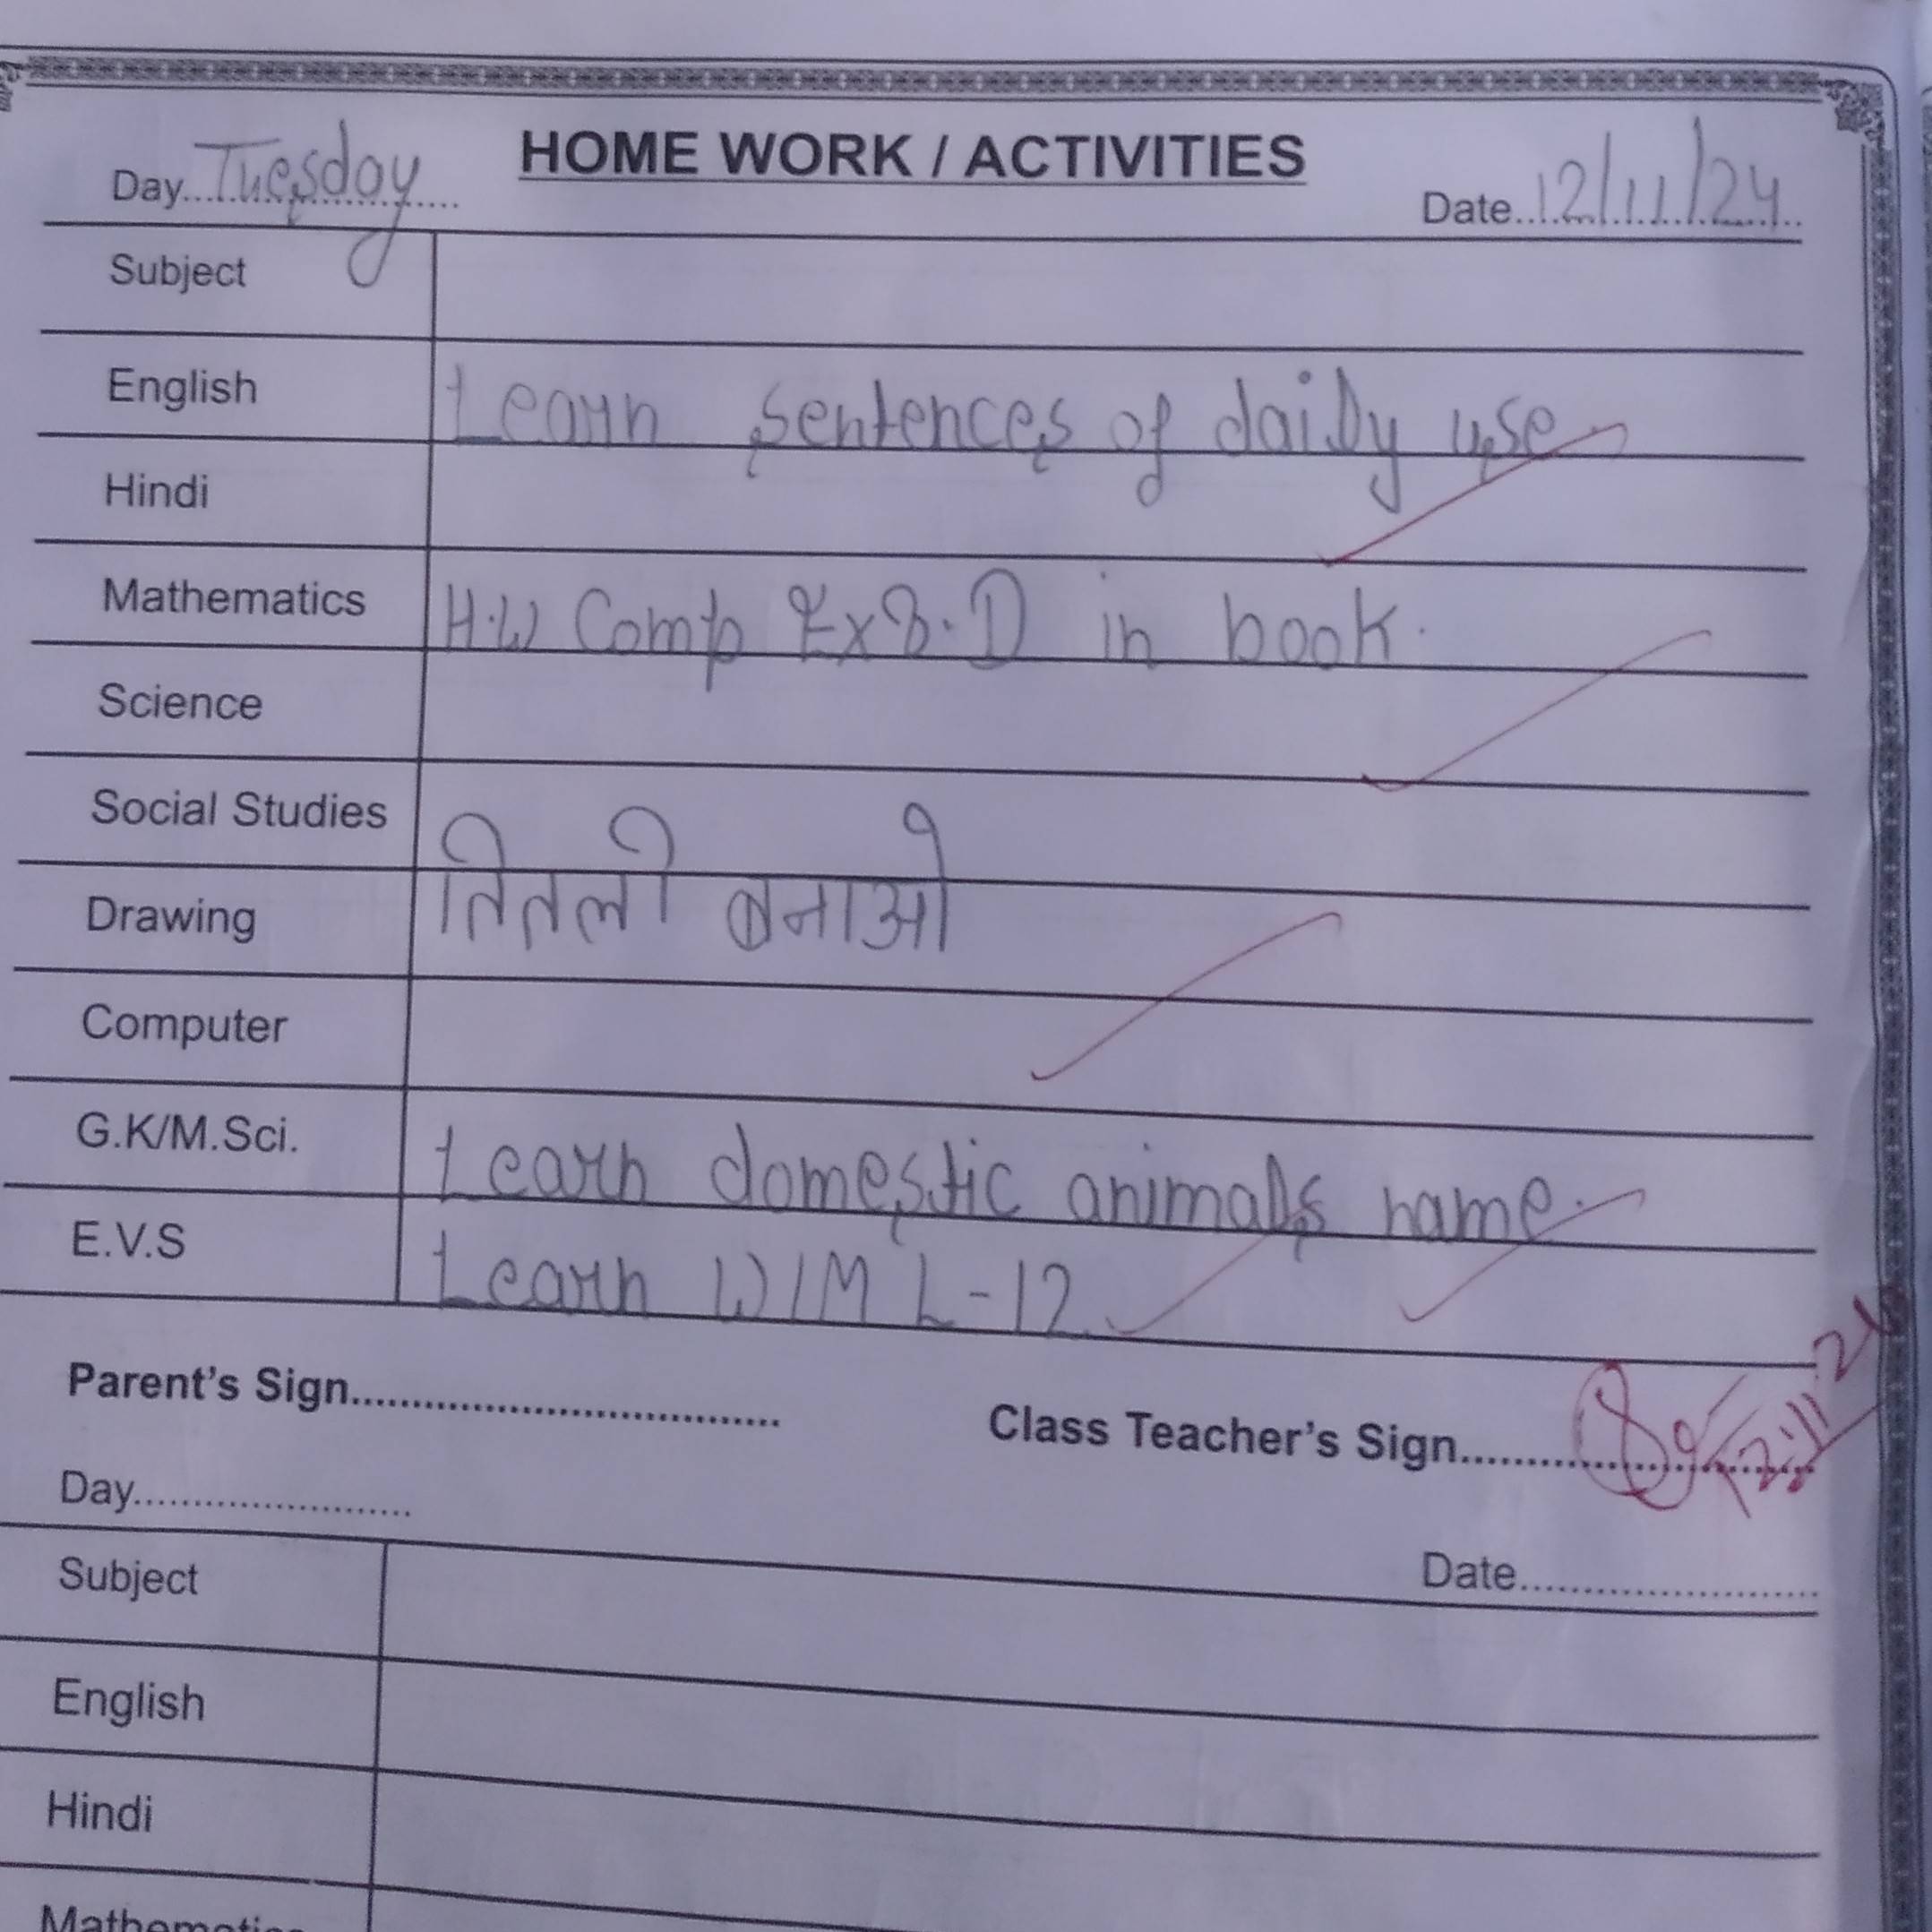 HOME WORK / ACTIVITIES
Day...Tuesday... Date...12/11/24...
Subject
English Learn sentences of daily use.
Hindi
Mathematics H.W Comp Ex 8.D in book.
Science
Social Studies
Drawing तितली बनाओ
Computer
G.K/M.Sci. Learn domestic animals name.
E.V.S Learn W/M L-12.
Parent's Sign............ Class Teacher's Sign............ 12.11.24
Day............ Date............
Subject
English
Hindi
Mathematics